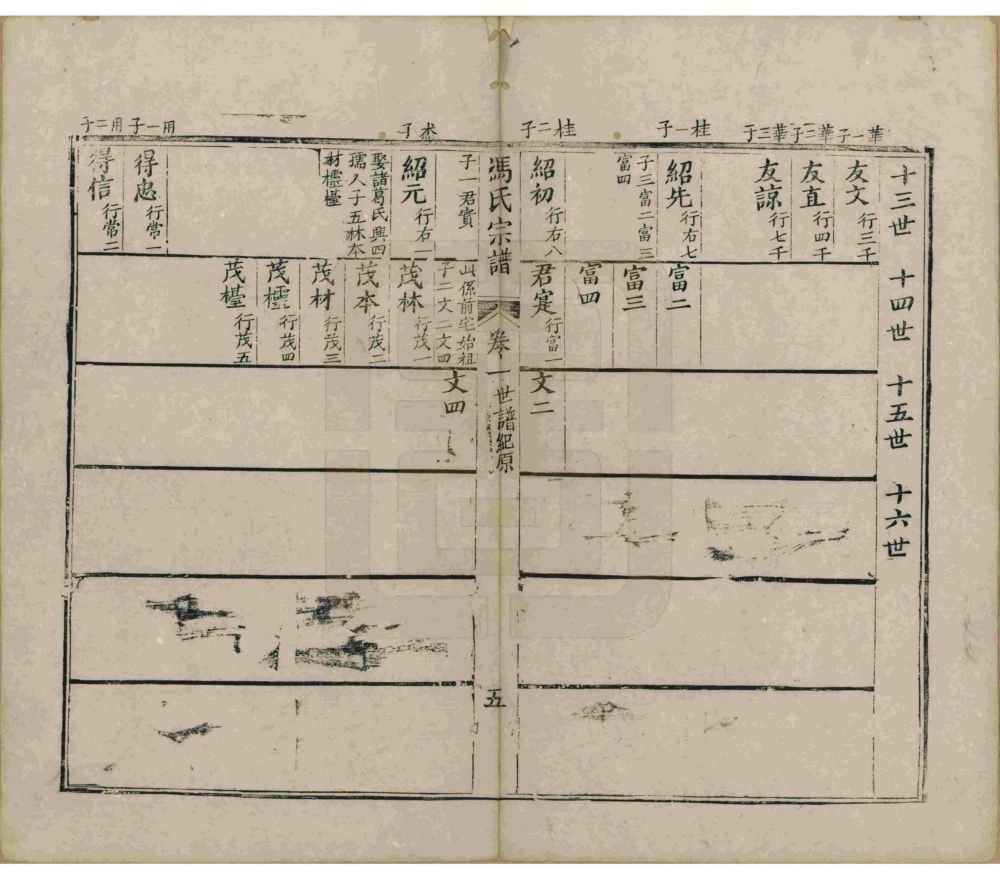 十三世 十四世 十五世 十六世
華一子
友文 行三千
華三子
友直 行四千
華三子
友諒 行七千
桂一子
紹先 行右七
子三富二富三
富四
富二
富三
富四
桂二子
紹初 行右八
君寔 行富一
文二
馮氏宗譜 卷一 世譜紀原 五
子一君實
此係前宅始祖
子二文二文四
文四
子
紹元 行右一
娶諸葛氏興四
孺人子五林本
材櫺檯
茂林 行茂一
茂本 行茂二
茂材 行茂三
茂櫺 行茂四
茂檯 行茂五
用一子
得忠 行常一
用二子
得信 行常二